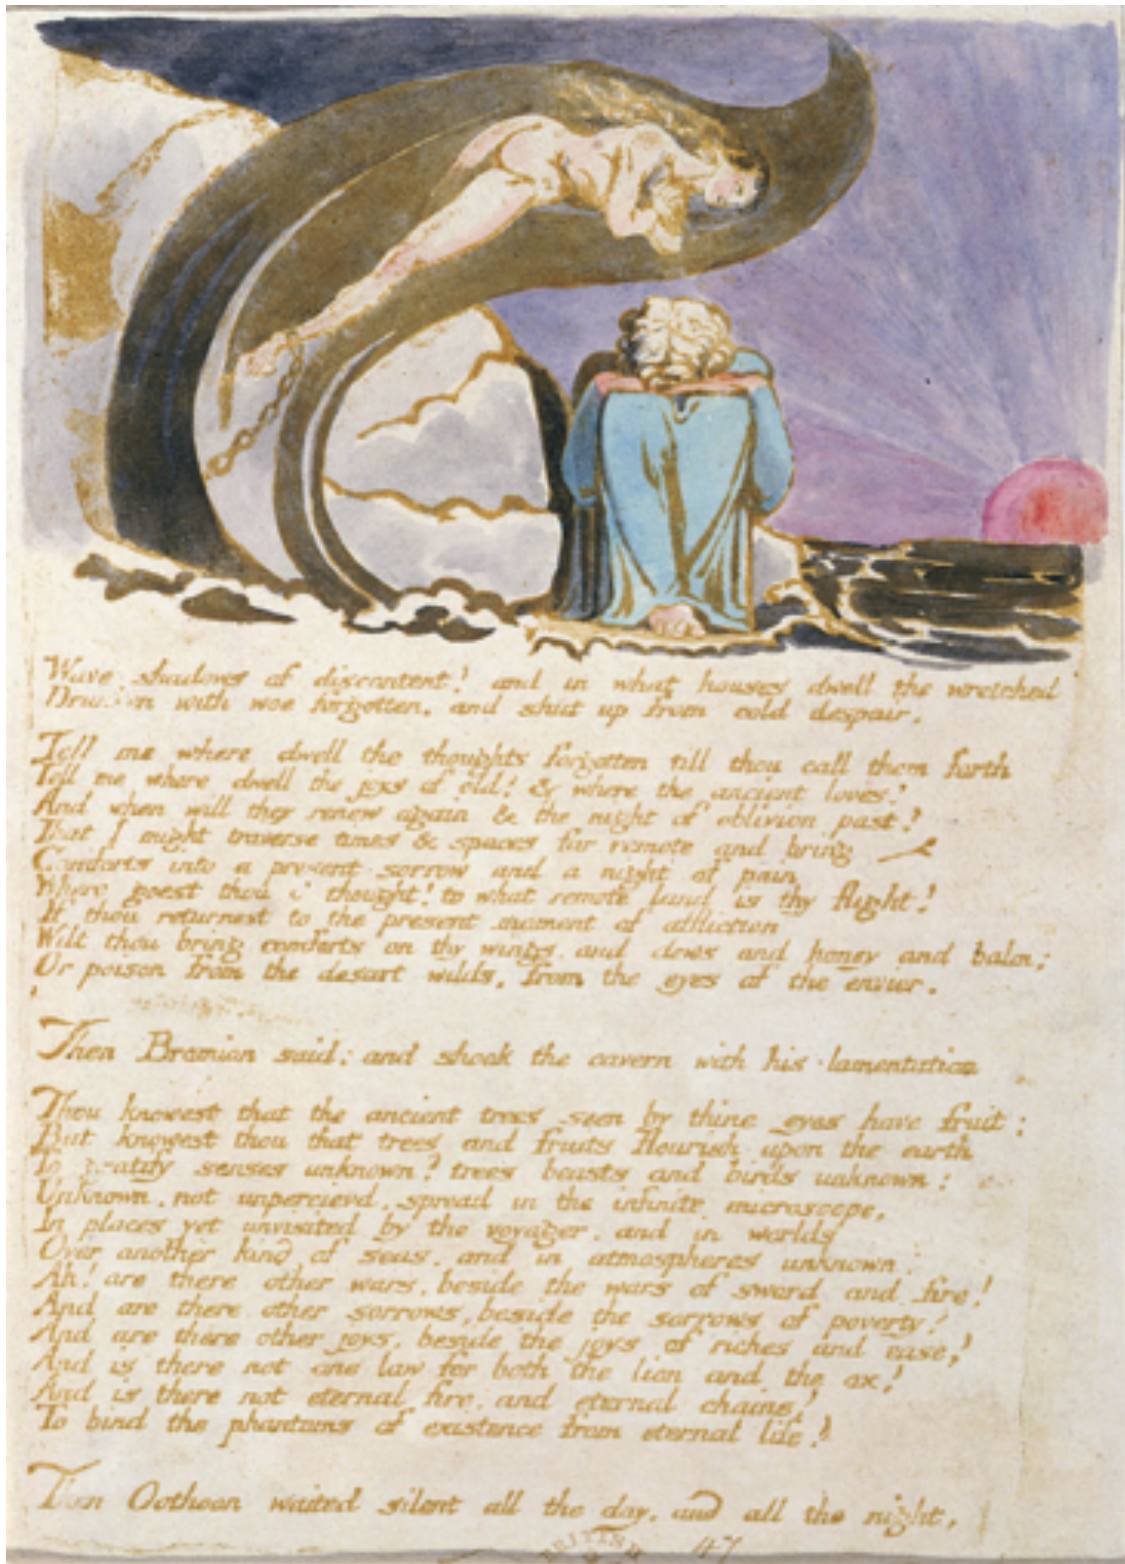 Wave shadows of discontent? and in what houses dwell the wretched
Drunken with woe forgotten, and shut up from cold despair.
Tell me where dwell the thoughts forgotten till thou call them forth
Tell me where dwell the joys of old! & where the ancient loves?
And when will they renew again & the night of oblivion past?
That I might traverse times & spaces far remote and bring
Comforts into a present sorrow and a night of pain
Where goest thou O thought! to what remote land is thy flight?
If thou returnest to the present moment of affliction
Wilt thou bring comforts on thy wings and dews and honey and balm;
Or poison from the desart wilds, from the eyes of the envier.
Then Bromion said: and shook the cavern with his lamentation
Thou knowest that the ancient trees seen by thine eyes have fruit;
But knowest thou that trees and fruits flourish upon the earth
To gratify senses unknown? trees beasts and birds unknown:
Unknown, not unpercievd, spread in the infinite microscope,
In places yet unvisited by the voyager, and in worlds
Over another kind of seas, and in atmospheres unknown.
Ah! are there other wars, beside the wars of sword and fire!
And are there other sorrows, beside the sorrows of poverty?
And are there other joys, beside the joys of riches and ease?
And is there not one law for both the lion and the ox?
And is there not eternal fire, and eternal chains?
To bind the phantoms of existence from eternal life?
Then Oothoon waited silent all the day, and all the night,
47